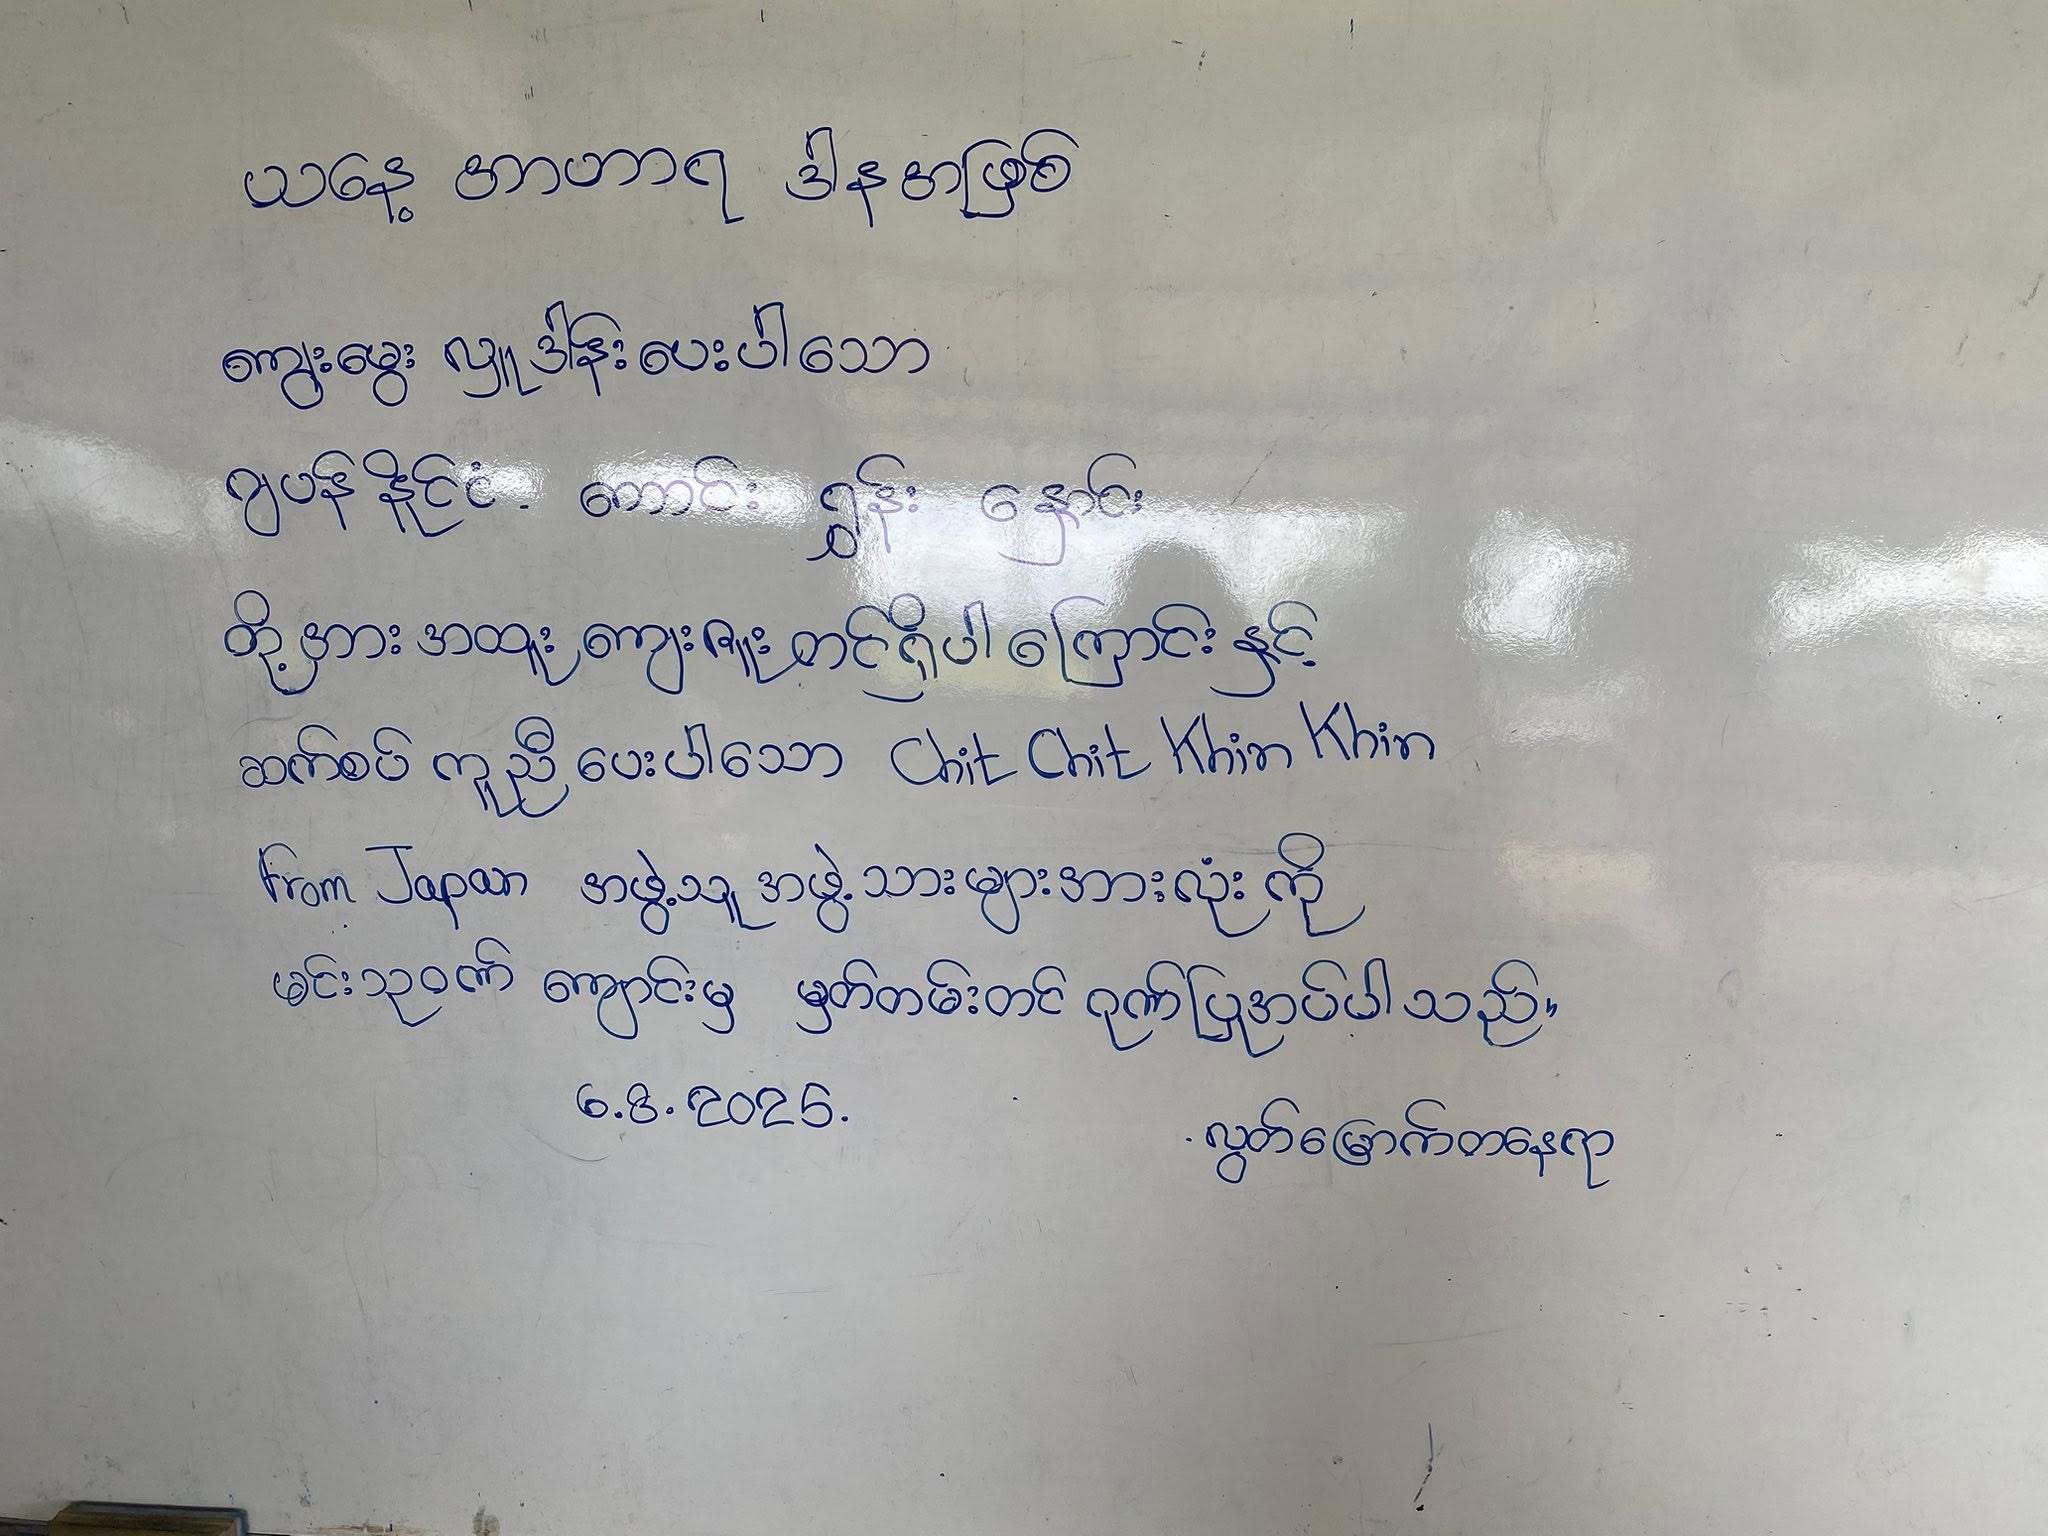 ယနေ့ အာဟာရ ဒါနအဖြစ်
ကျွေးမွေး လှူဒါန်းပေးပါသော
ဂျပန်နိုင်ငံ. ကောင်း ရွှန်း နှောင်း
တို့အား အထူး ကျေးဇူး တင်ရှိပါကြောင်းနှင့်
ဆက်စပ် ကူညီ ပေးပါသော Chit Chit Khin Khin
From Japan အဖွဲ့သူ အဖွဲ့သားများအားလုံးကို
မင်းသုဝဏ် ကျောင်းမှ မှတ်တမ်းတင် ဂုဏ်ပြုအပ်ပါသည်။
6.8.2025.
လွတ်မြောက်တနေရာ